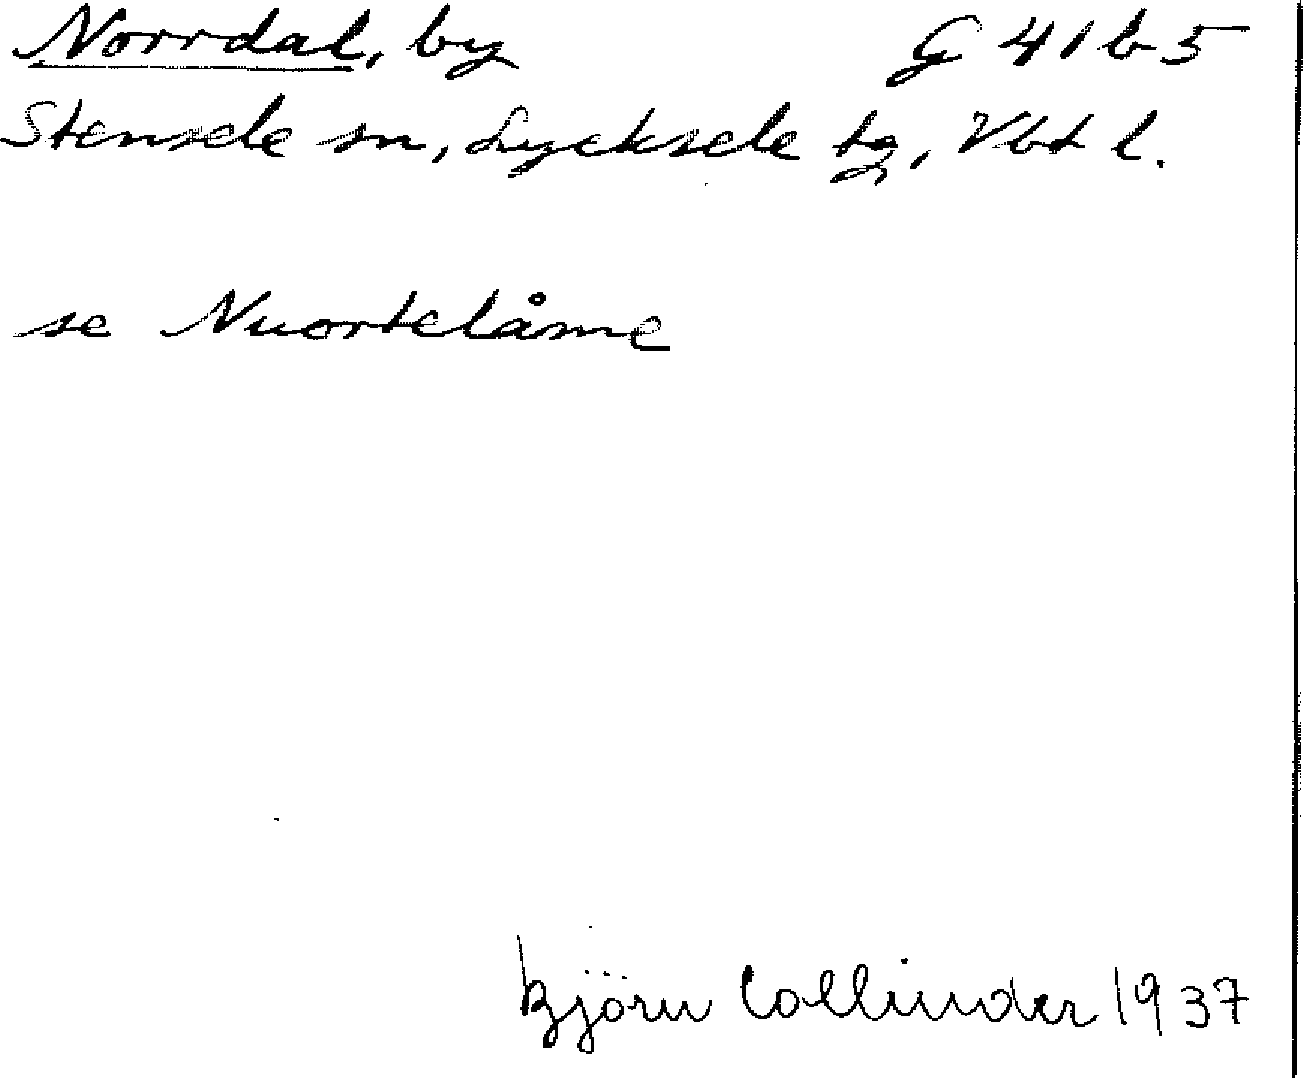 Norrdal, by G 41 b 5
Stensele sn, Lycksele tg, Vbt l.
se Nuortelåme
Björn Collinder 1937